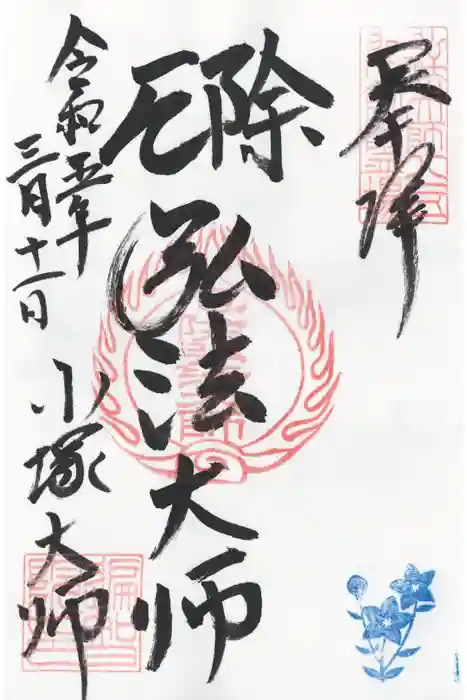 奉拝
除厄
弘法大師
令和五年
三月十一日
小塚大師